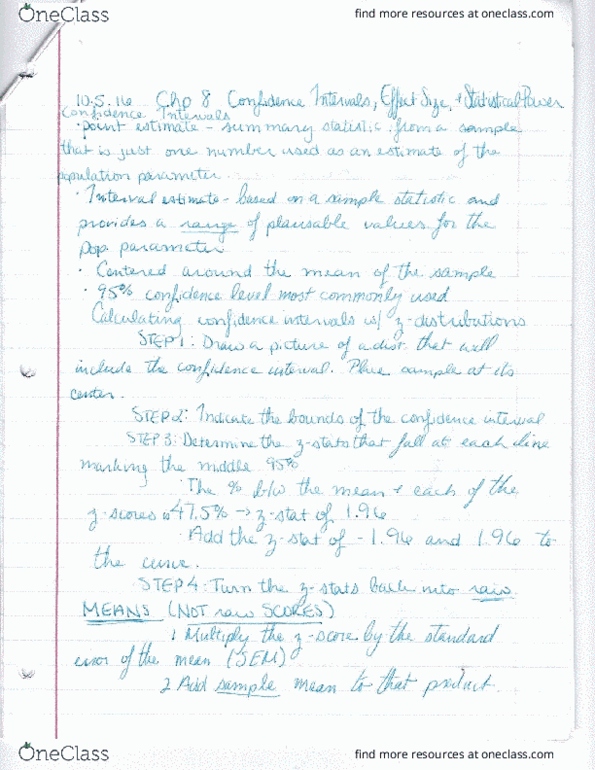 OneClass
find more resources at oneclass.com
10.5.16 Chp 8 Confidence Intervals, Effect Size, + Statistical Power
Confidence Intervals
· point estimate - summary statistic from a sample
that is just one number used as an estimate of the
population parameter.
· Interval estimate - based on a sample statistic and
provides a range of plausable values for the
pop parameter
· Centered around the mean of the sample
· 95% confidence level most commonly used
Calculating confidence intervals w/ z-distributions
STEP 1: Draw a picture of a dist. that will
include the confidence interval. Place sample at its
center.
STEP 2: Indicate the bounds of the confidence interval
STEP 3: Determine the z-stats that fall at each line
marking the middle 95%
· The % b/w the mean + each of the
z-scores is 47.5% -> z-stat of 1.96
· Add the z-stat of -1.96 and 1.96 to
the curve.
STEP 4: Turn the z-stats back into raw
MEANS (NOT raw SCORES)
1 Multiply the z-score by the standard
error of the mean (SEM)
2 Add sample mean to that product.
OneClass
find more resources at oneclass.com